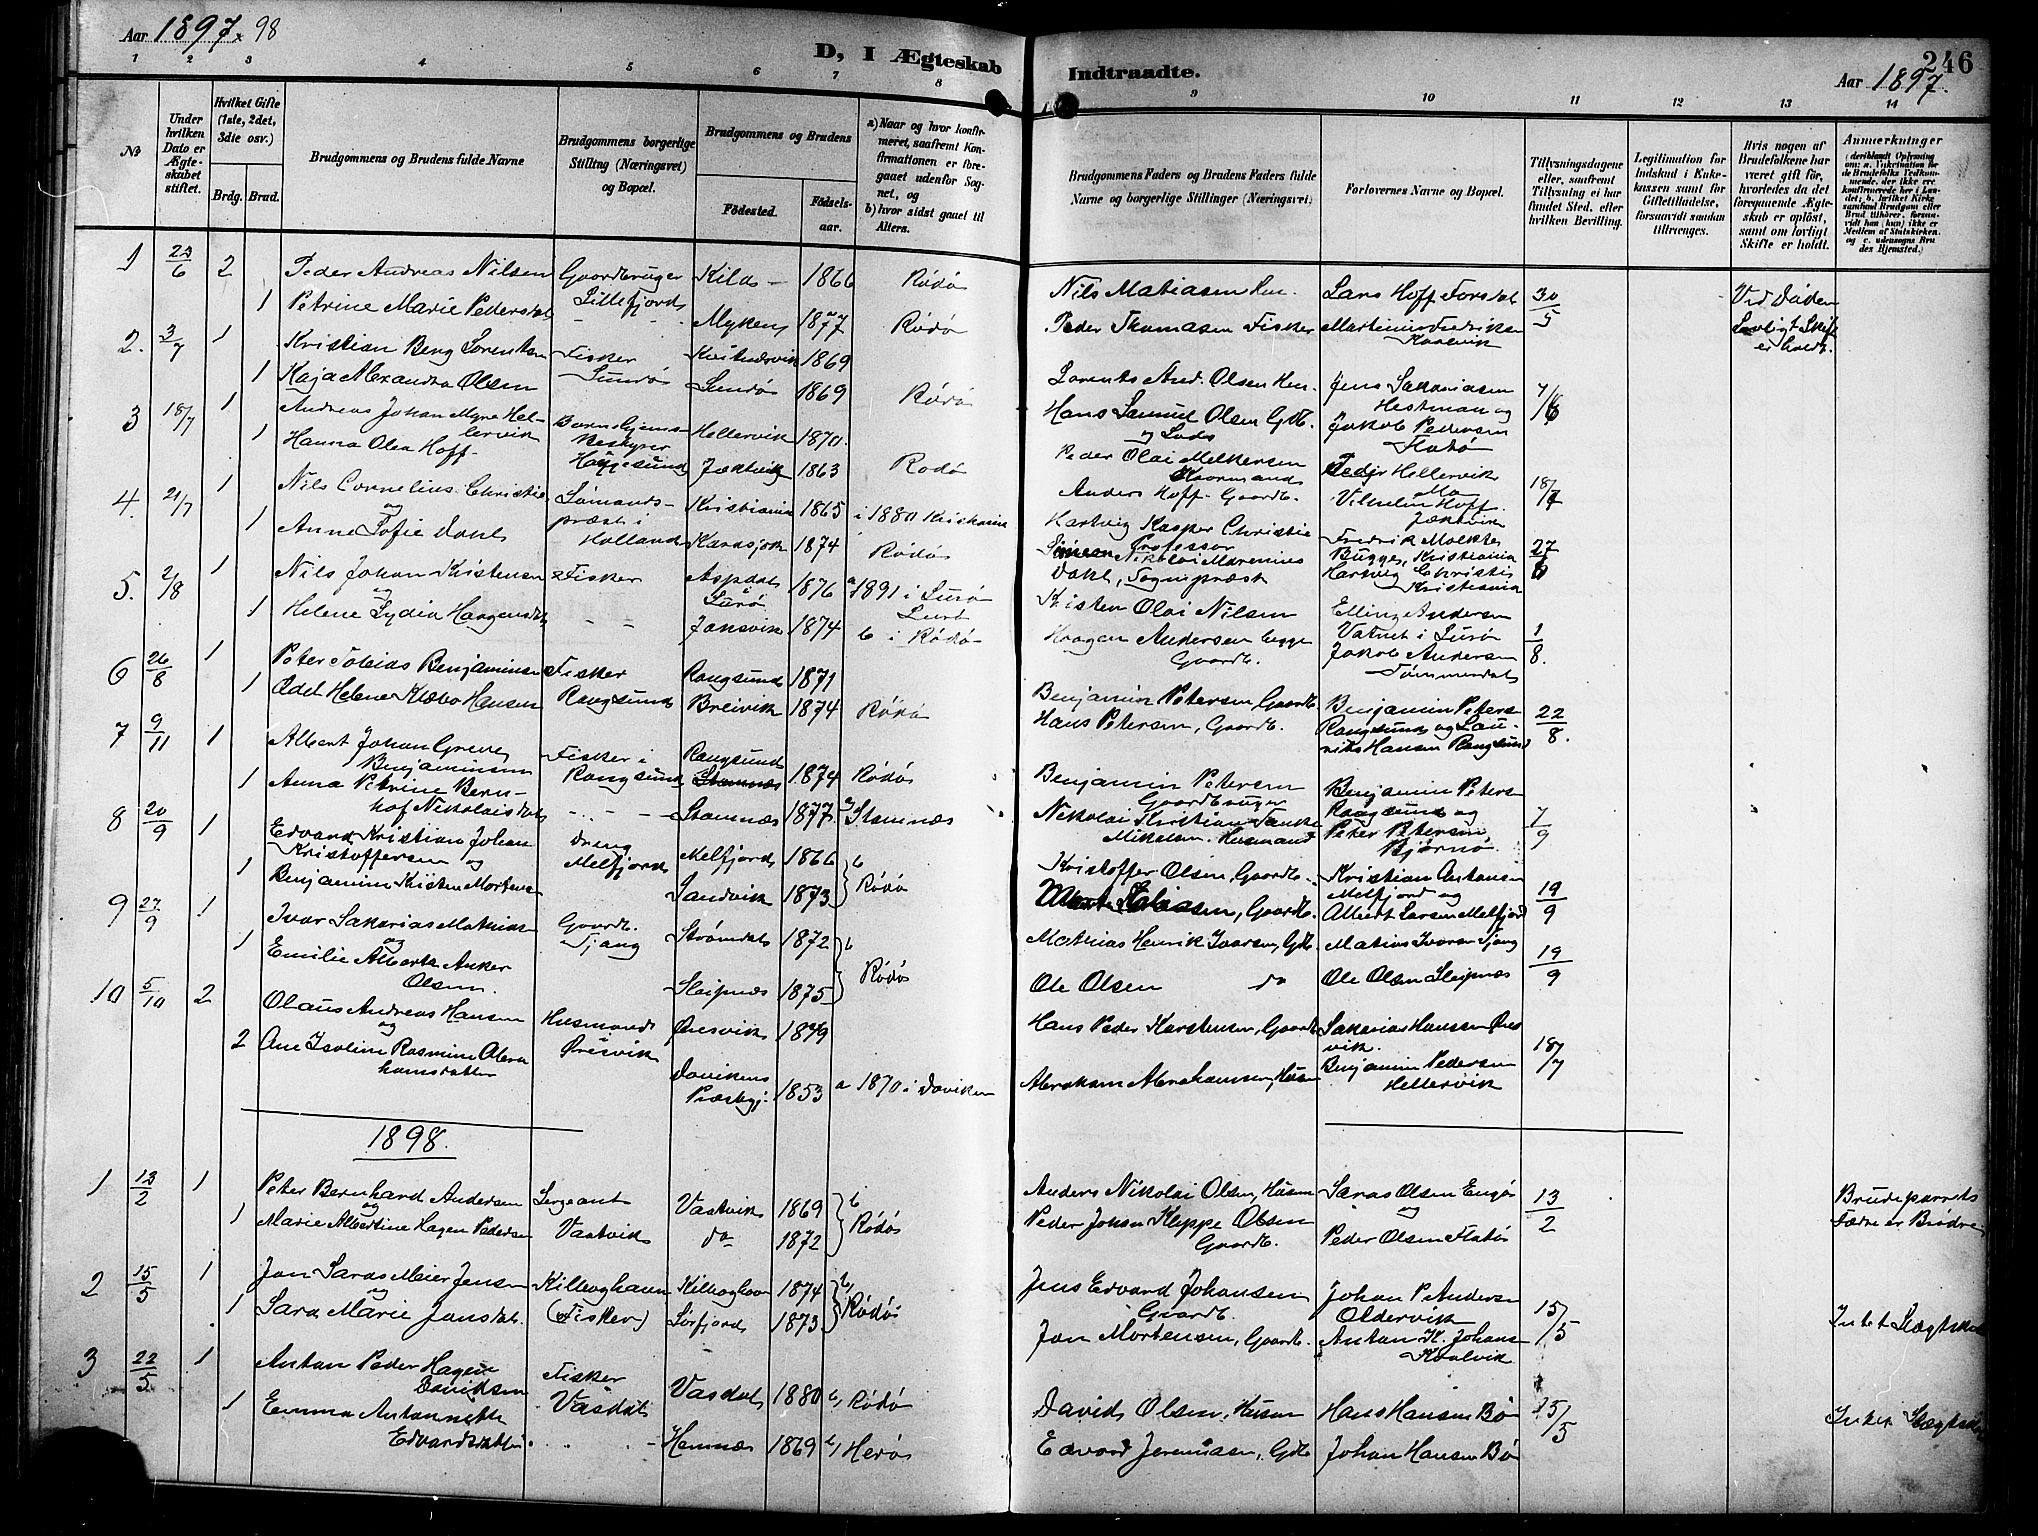 Aar 1897 x 98
D, I Ægteskab Indtraadte.
246
Aar 1897.
1 2 3 4 5 6 7 8 9 10 11 12 13 14
No
Under hvilken Dato er Ægteskabet stiftet.
Hvilket Gifte (1ste, 2det, 3die osv.)
Brdg. Brud.
Brudgommens og Brudens fulde Navne
Brudgommens borgerlige Stilling (Næringsvei) og Bopæl.
Brudgommens og Brudens
Fødested. Fødselsaar.
a) Naar og hvor konfirmeret, saafremt Konfirmationen er foregaaet udenfor Sognet, og
b) hvor sidst gaaet til Alters.
Brudgommens Faders og Brudens Faders fulde Navne og borgerlige Stillinger (Næringsvei)
Forlovernes Navne og Bopæl.
Tillysningsdagene eller, saafremt Tillysning ei har fundet Sted, efter hvilken Bevilling.
Legitimation for Indskud i Enkekassen samt for Giftetilladelse, forsaavidt saadan tiltrænges.
Hvis nogen af Brudefolkene har været gift før, hvorledes da det foregaaende Ægteskab er opløst, samt om lovligt Skifte er holdt.
Anmerkninger
1 23/6 2 Peder Andreas Nilsen Gaardbruger Kilds 1866 Rødø Nils Matiasen Lars Hoff Forsdal 30/5 Ved Døden
1 Petrine Marie Pedersdat Lillefjord Myken 1877 Rødø Peder Thomasen Fisker Kvalvik Lovligt Skifte er holdt.
2. 3/7 1 Kristian Berg Lorentsen Fisker 1869 Lorents And. Olsen Jens Sakariasen 7/6
1 Kaja Alexandra Olsen Sundø Sundø 1869 Rødø Hans Samuel Olsen Gdb. og Lods Hestman og Jakob Pedersen Flatø
3 18/7 1 Andreas Johan Myre Hellervik Hellervik 1870. Peder Olai Melkersen Peder Hellervik 18/7
1 Hanna Olea Hoff Haugesund Jektvik 1863 Rødø Anders Hoff Gaardb. Vilhelm Hoff Jektvik
4. 21/7 1 Nils Cornelius Christie og Sømandspræst i Holland Kristiania 1865 i 1880 Kristiania Hartvig Kasper Christie Professor Fredrik Moltke Bugge, Kristiania 27/6
1 Anne Sofie Dahl Karasjok 1874 Rødø Simeon Nikolai Marenius Dahl, Sognepræst Hartvig Christie Kristiania
5. 2/8 1 Nils Johan Kristensen og Fisker Aspdal Lurø 1876 a 1891 i Lurø Kristen Olai Nilsen Elling Andersen Vatnet i Lurø 1/8.
1 Helene Lydia Haagensdat Jensvik 1874 b i Rødø Haagen Andersen begge Gaardb. Jakob Andersen Tømmerdal
6 26/8 1 Peter Tobias Benjaminsen Fisker Rangsund 1871 Benjamin Petersen, Gaardb Benjamin Peters Rangsund og 22/8.
1 Odel Helene Klæbo Hansen Rangsund Breivik 1874 Rødø Hans Petersen, Gaardb. Lauriks Hansen Rangsund
7 9/11 1 Albert Johan Greve Benjaminsen Fisker i Rangsund Rangsund 1874 Rødø Benjamin Petersen Gaardbruger Benjamin Peters Rangsund og 7/9
1 Anna Petrine Bernhof Nikolaisdat Stamnæs 1877 a Stamnæs Nikolai Kristian Tanke Mikalsen. Husmand Peter Petersen Bjørnø.
8 20/9 1 Edvard Kristian Johan Kristoffersen og Dreng Melfjord Melfjord 1866 b Rødø Kristoffer Olsen, Gaardb. Kristian Antonsen Melfjord og 19/9
1 Benjamine Kristen Mortens Sandvik 1873 Gaardb. Albert Larsen Melfjord
9 27/9 1 Ivar Sakarias Mathias og Gaardb. Tjong Strømdal 1872 b Rødø Mathias Henrik Ivarsen, Gdb. Matias Ivarsen Tjong 19/9
1 Emilie Alberte Anker Olsen. Sleipnæs 1875 Ole Olsen do Ole Olsen Sleipnæs
10 5/10 2 Olaus Andreas Hansen og Husmand Øresvik Øresvik 1849 Hans Peder Karstensen, Gaardb Sakarias Hansen Øresvik. 18/7
2 Ane Iseline Rasmine Abrahamsdatter Davikens Præstegj. 1853 a 1870 i Daviken Abraham Abrahamsen, Husm Benjamin Pedersen Hellervik
1898.
1 13/2 1 Peter Bernhard Andersen og Sergeant Vaatvik 1869 b Rødø Anders Nikolai Olsen, Husm Saras Olsen Engø og 13/2 Brudeparrets
1 Marie Albertine Hagen Pedersen Vaatvik do 1872 Peder Johan Kleppe Olsen Gaardb. Peder Olsen Flatø Fædre er Brødre
2 15/5 1 Jon Saras Meier Jensen og Kilboghavn Kilboghavn 1874 b Rødø Jens Edvard Johansen Gaardb. Johan P Andersen Oldervik 15/5
1 Sara Marie Jonsdat. (Fisker) Sørfjord 1873 Jon Mortensen, Gaardb. Anton K. Johans Kvalvik Intet Slægtskab
3 22/5 1 Anton Peder Hagen Davidsen Fisker Vasdal 1880 b Rødø David Olsen, Husm Hans Hansen Bø 15/5
1 Emma Antonette Edvardsdatter. Vasdal Hemnæs 1869 b Herø Edvard Jeremiasen, Gdb Johan Hansen Bø Intet Slægtskab